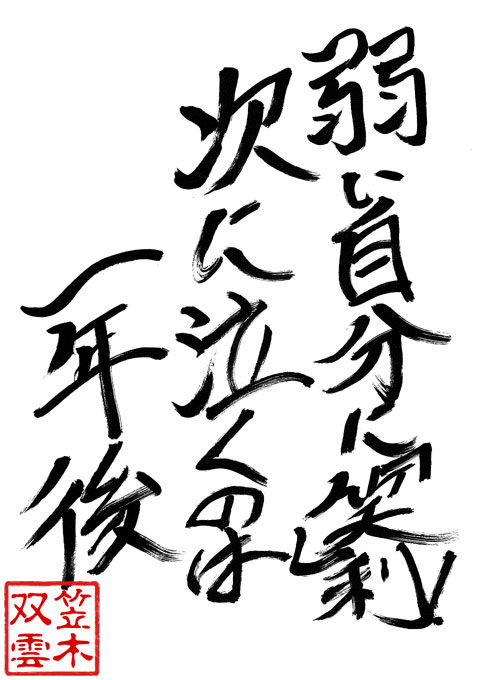 弱い自分に
次に泣くのは
一年後
笠木
双雲